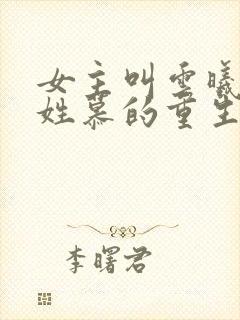 女主叫云曦
姓慕的重生
李曙君